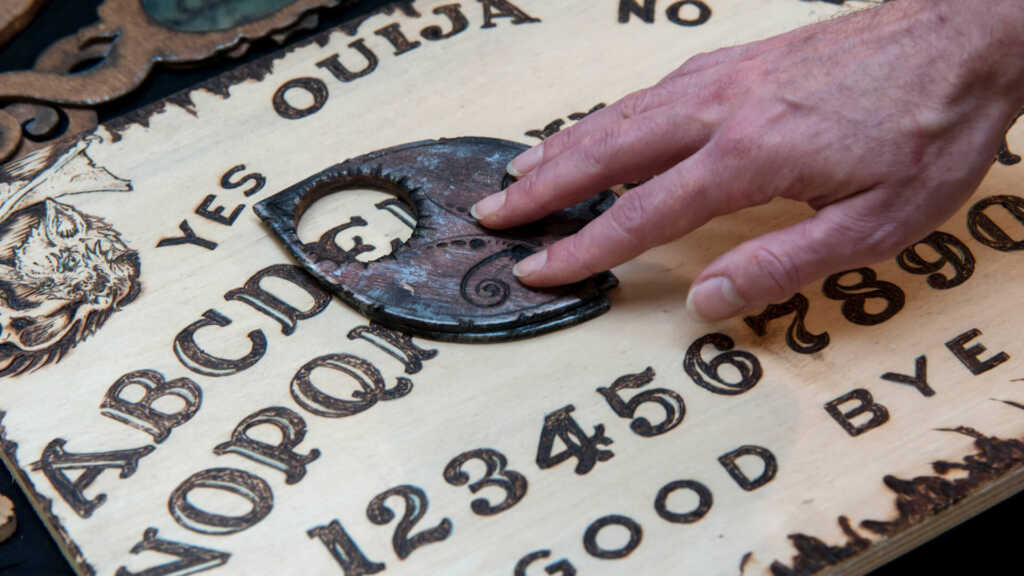 OUIJA
YES NO
ABCDE
NOPQR
1234567890
GOOD BYE